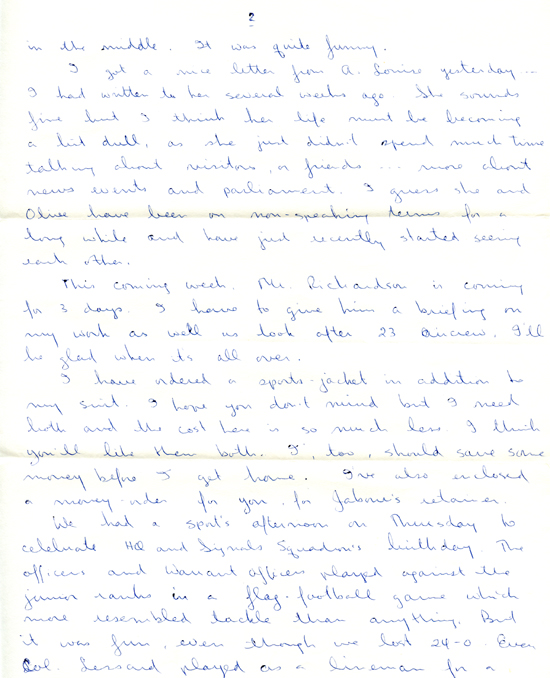 2
in the middle. It was quite funny.
I got a nice letter from A. Louise yesterday...
I had written to her several weeks ago. She sounds
fine but I think her life must be becoming
a bit dull, as she just didn't spend much time
talking about visitors, or friends ... more about
news events and parliament. I guess she and
Olive have been on non-speaking terms for a
long while and have just recently started seeing
each other.
This coming week, Mr. Richardson is coming
for 3 days. I have to give him a briefing on
my work as well as look after 23 aircrew. I'll
be glad when its all over.
I have ordered a sports-jacket in addition to
my suit. I hope you don't mind but I need
both and the cost here is so much less. I think
you'll like them both. I, too, should save some
money before I get home. I've also enclosed
a money-order for you, for retainer.
We had a sport's afternoon on Thursday to
celebrate HQ and Signals Squadron's birthday. The
officers and Warrant officers played against the
junior ranks in a flag-football game which
more resembled tackle than anything. But
it was fun, even though we lost 24-0. Even
Col. Lessard played as a lineman for a